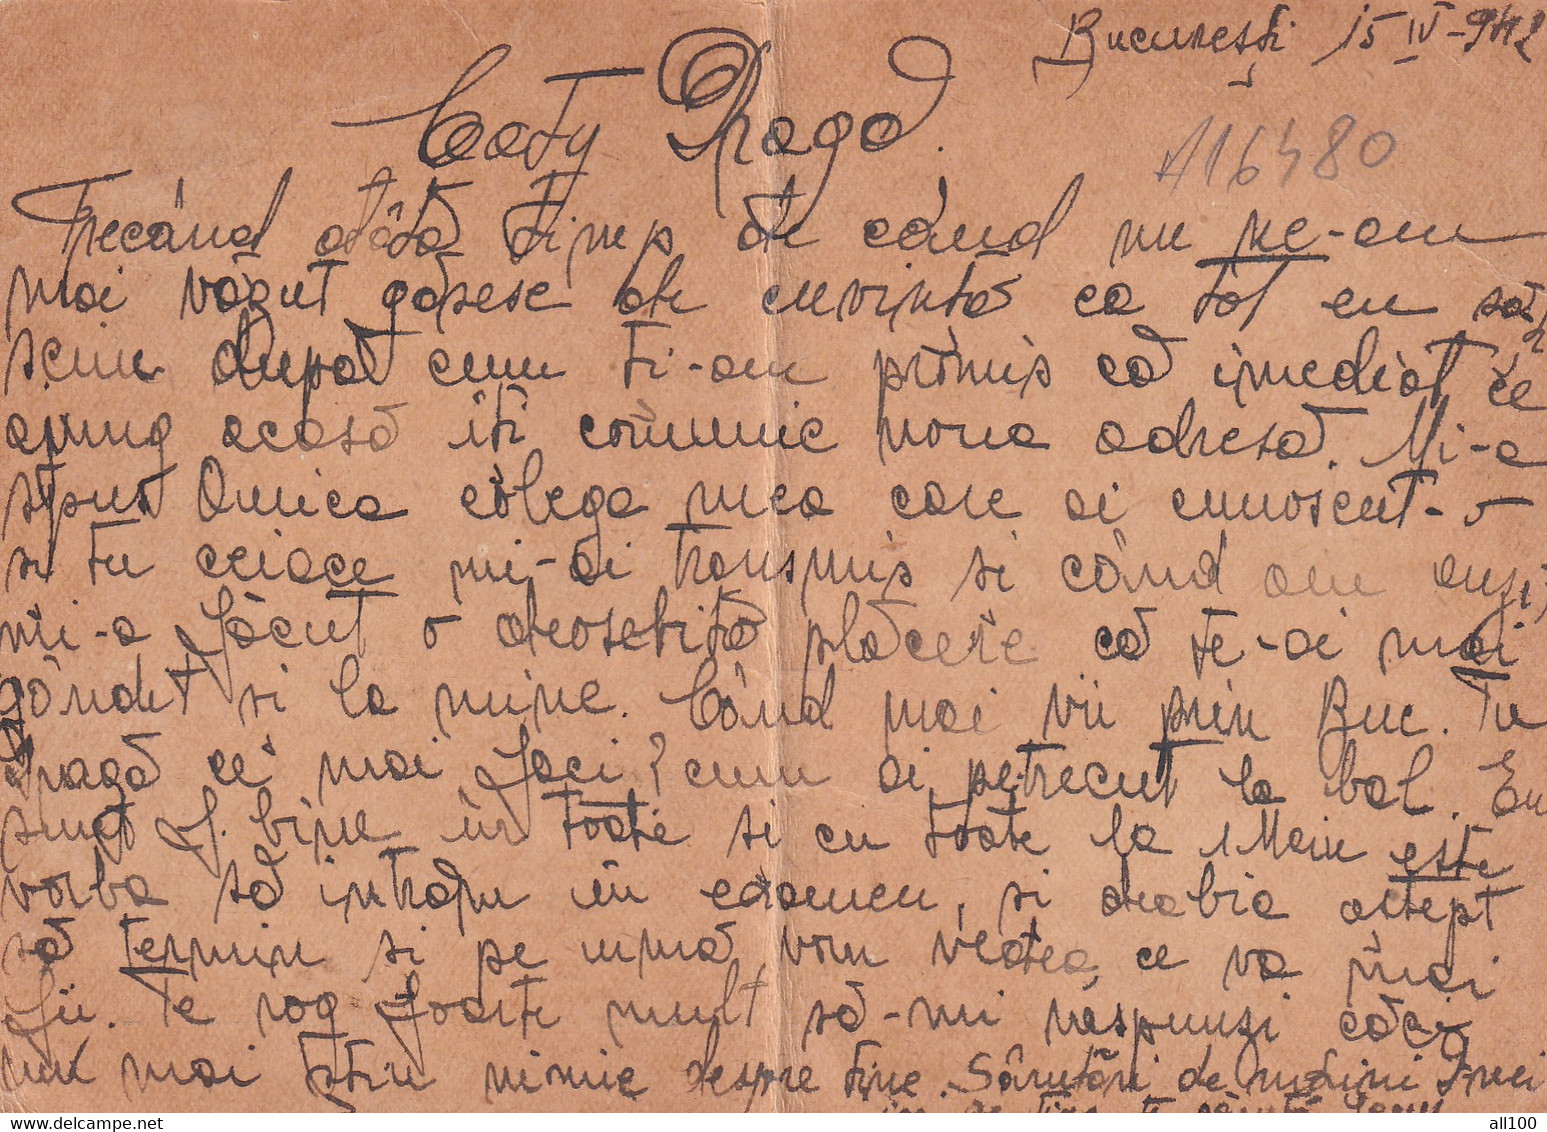 București 15 IV-942
Caty Dragă.
A16480
Trecând atâta timp de când nu ne-am
mai văzut găsesc de cuvintă ca tot eu să
scriu după cum ti-am prŏmis că imediat ce
ajung acasă iti comunic noua adresă. Mi-a
spus Anica colega mea care ai cunoscut-o
si tu ceiace mi-ai transmis si când am auzit
mi-a făcut o deosebită plăcere că te-ai mai
gândit si la mine. Când mai vii prin Buc. Tu
Dragă ce mai faci? cum ai petrecut la bal. Eu
sunt f. bine în toate si cu toate la 1 Main este
vorba să intrăm în examen, si abia astept
să termin si pe urmă vom vedea, ce va mai
fii. Te rog foarte mult să-mi răspunzi căci
nu mai stiu nimic despre tine. Sărutări de mâini